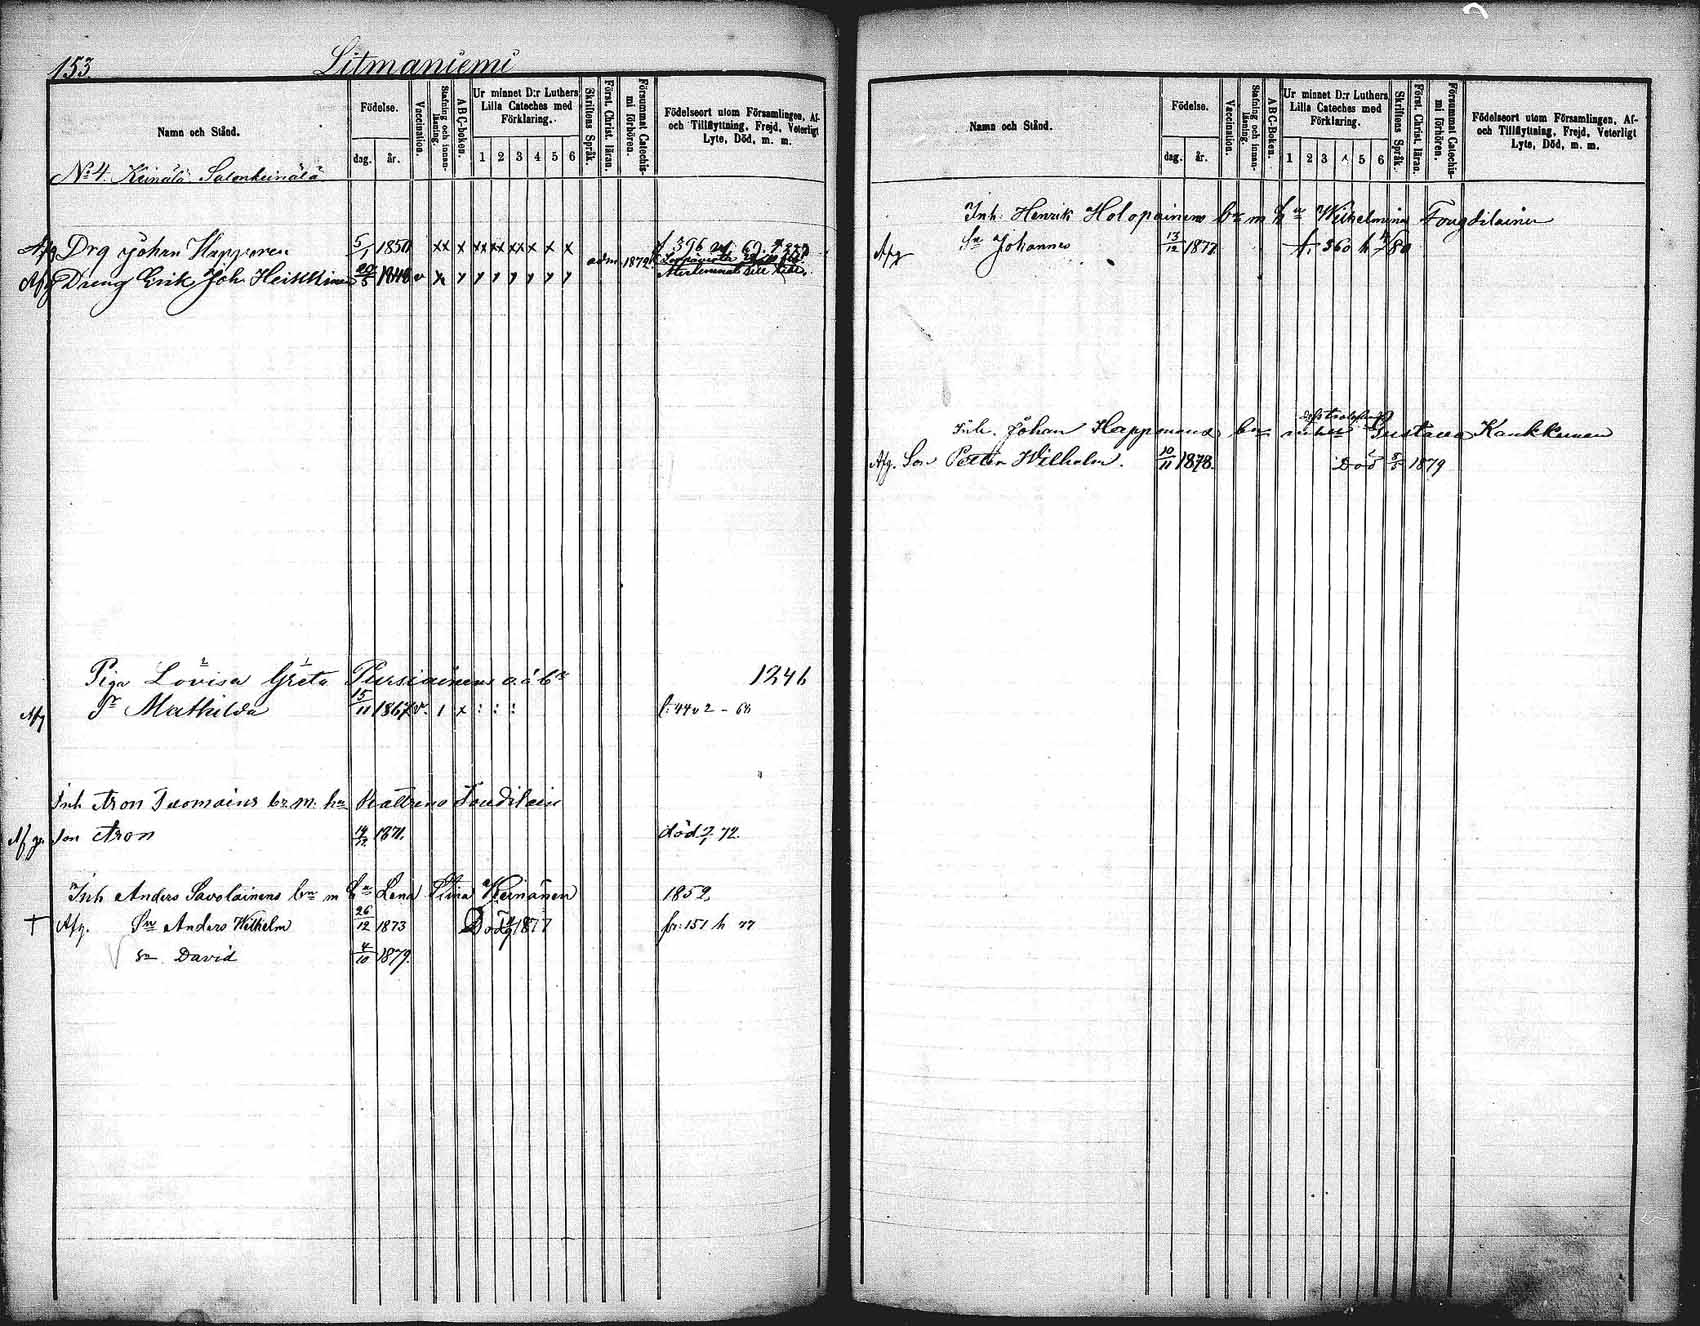 153.
Litmaniemi
Namn och Stånd.
Födelse.
dag.
år.
Vaccination.
Stafning och innan-läsning.
A B C-boken.
Ur minnet D:r Luthers Lilla Cateches med Förklaring.
1 2 3 4 5 6
Skriftens Språk.
Först. Christ. läran.
Försummat Catechis-mi förhören.
Födelseort utom Församlingen, Af- och Tillflyttning, Frejd, Veterligt Lyte, Död, m. m.
No 4. Keinälä Salonkeinälä
Afg Drg Johan Happonen 5/1 1850 xx x xx xx xx x x x
Afg Dreng Erik Joh Heikkinen 1848 v adm. 1872
Piga Lovisa Greta Pursiainens o. ä. bn 1246
Afg Mathilda 15/11 1867 v. 1 x : : :
Inh Aron Tuomainens bn m. hu Kattrina
Afg. Son Aron 1871. död 72.
Inh Anders Savolainens bn m hu Lena Stina Keinänen 1852
† Afg. Sn Anders Wilhelm 26/12 1873 Död 1877 fr: 151 h 77
sn David 4/10 1879.
Namn och Stånd.
Födelse.
dag.
år.
Vaccination.
Stafning och innan-läsning.
A B C-Boken.
Ur minnet D:r Luthers Lilla Cateches med Förklaring.
1 2 3 4 5 6
Skriftens Språk.
Först. Christ. läran.
Försummat Catechis-mi förhören.
Födelseort utom Församlingen, Af- och Tillflyttning, Frejd, Veterligt Lyte, Död, m. m.
Inh: Henrik Holopainens bn m hu Wilhelmina
Afg Sn Johannes 13/12 1877 t. 360 h /80
Inh. Johan Happonens bn Gustava Kaukkunen
Afg. Son Petter Wilhelm. 10/11 1878. Död 5/5 1879